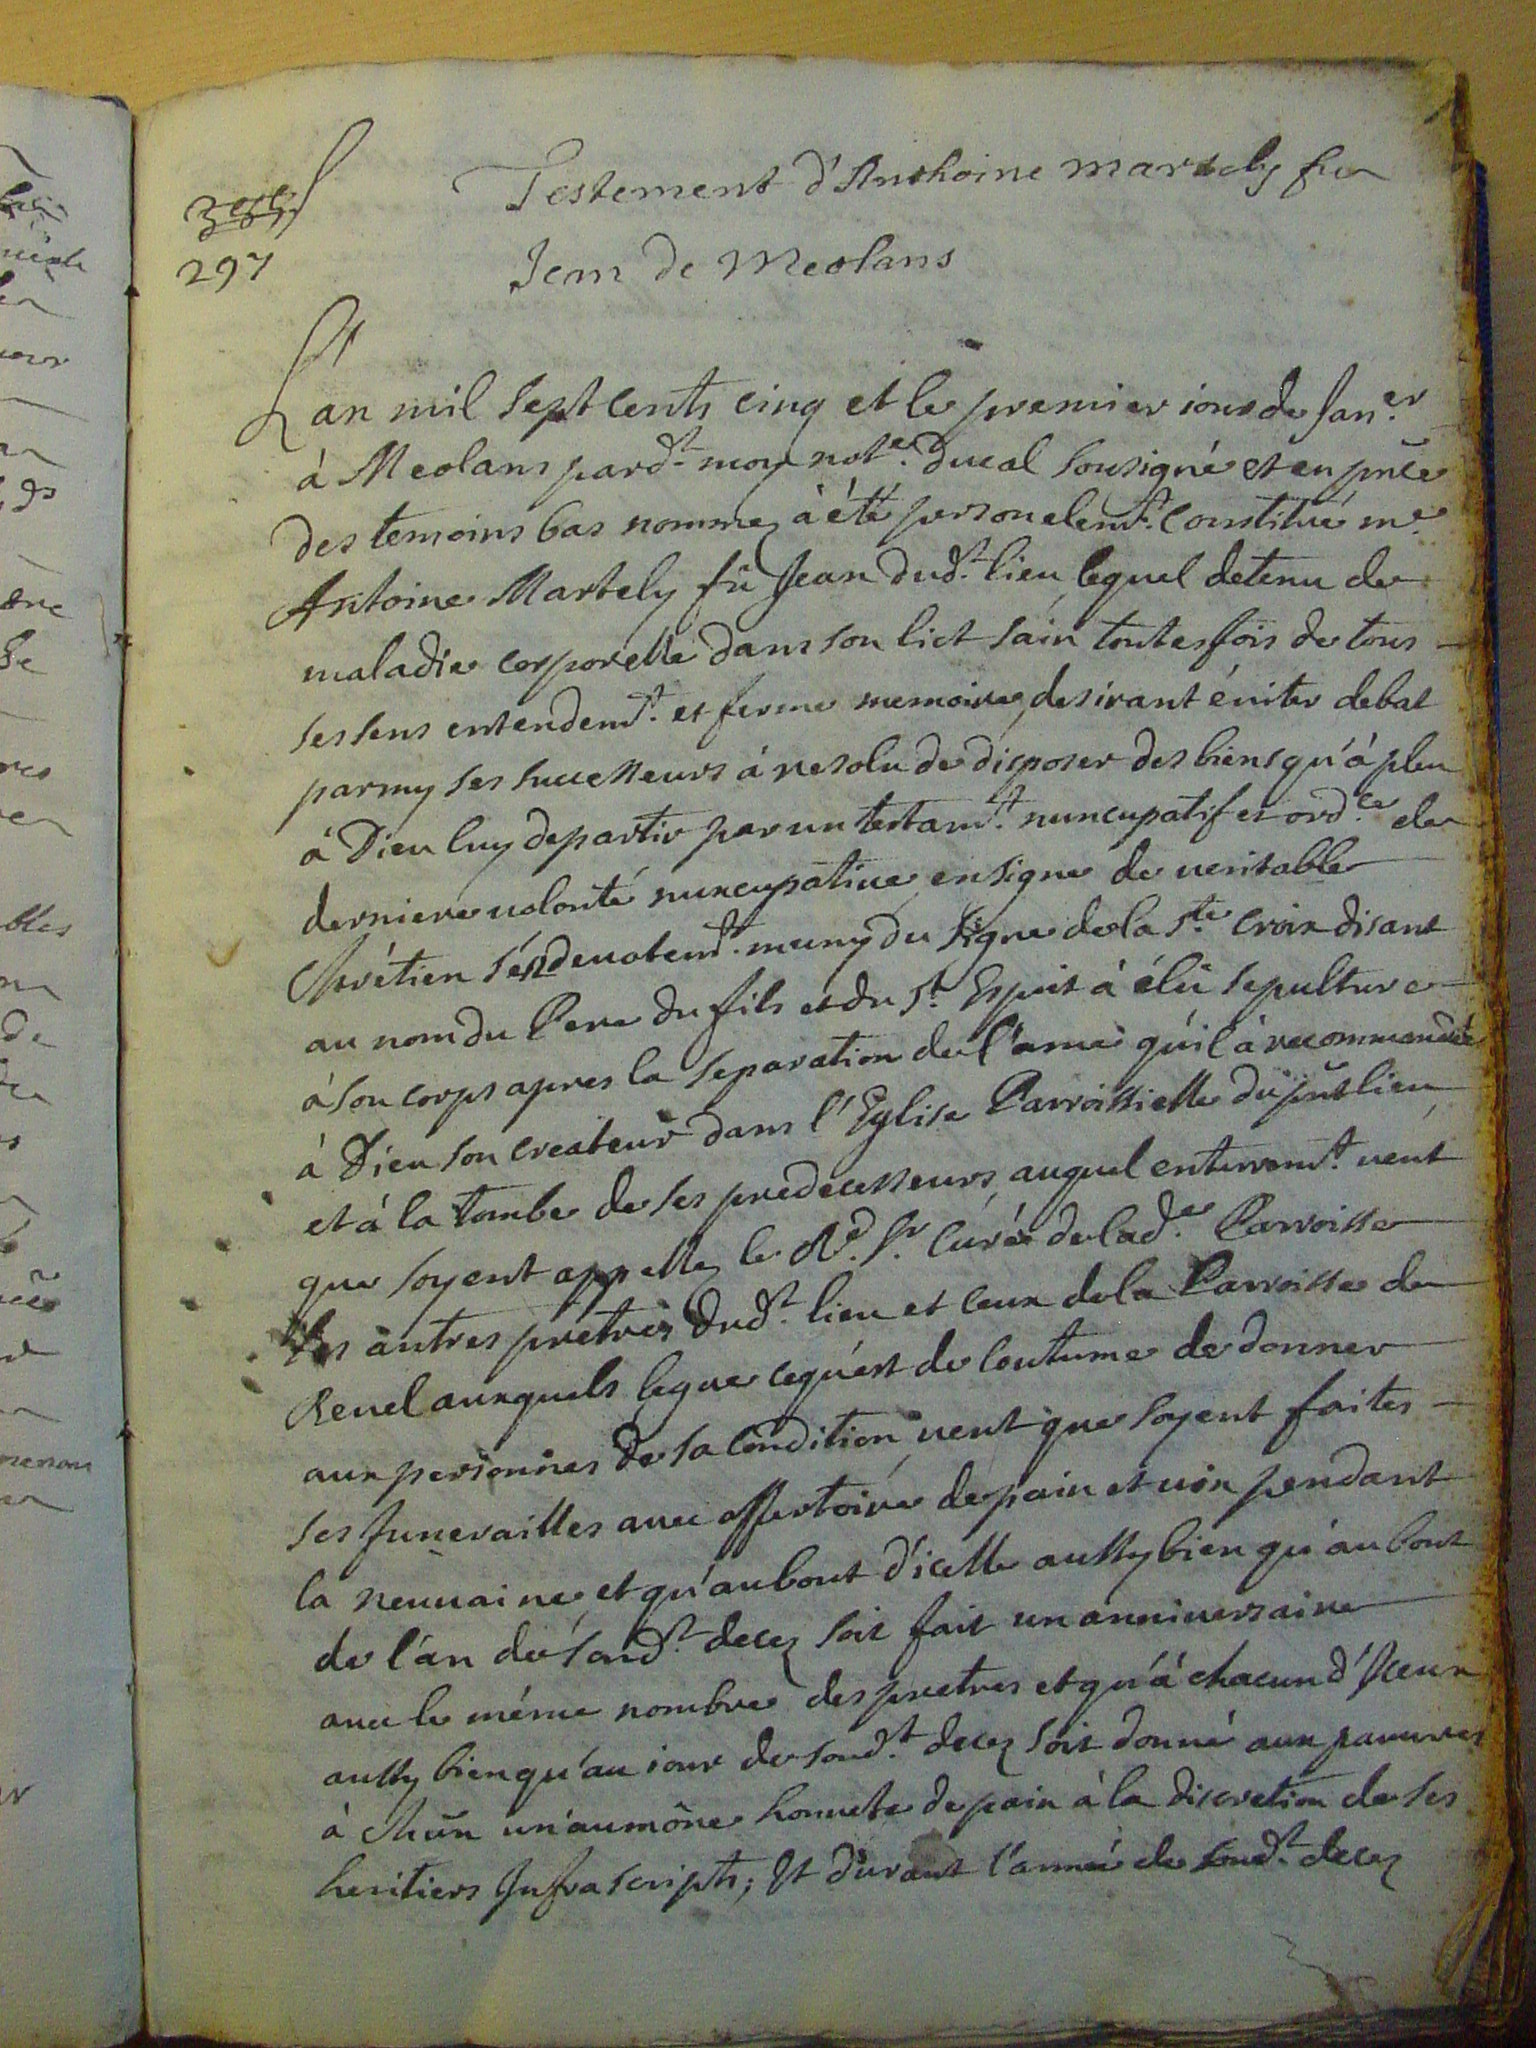 297
Testement d'Anthoine martely fu
Jean de Meolans
L'an mil sept cents cinq et le premier iour de Jan.er
à Meolans pard.t moy not.e ducal sousigné et en pñce
des temoins bas nommez à été personelem.t constitué m.e
Antoine Martely fû Jean dud.t lieu, lequel detenu de
maladie corporelle dans son lict sain toutesfois de tous
ses sens entendem.t et ferme memoire, desirant éuiter debat
parmy ses successeurs à resolu de disposer des biens qu'à pleu
à Dieu luy departir par un testam.t nuncupatif et ord.ce de
derniere uolonté nuncupatiue, en signe de ueritable
Chrétien s'én deuotem.t muny du signe de la s.te Croix disant
au nom du Pere du fils et du s.t Esprit à élû sepulture
à son corps apres la separation de l'ame qu'il à recommandée
à Dieu son createur dans l'Eglise Parroissielle du pñt lieu
et à la tombe de ses predecesseurs, auquel enterrem.t ueut
que soyent appellez le R.d S.r Curée de lad.e Parroisse
les autres prêtres dud.t lieu et ceux de la Parroisse de
Reuel auxquels legue ce qu'est de coutume de donner
aux personnes de sa condition, ueut que soyent faites
ses funerailles auec offertoire de pain et uin pendant
la neuuaine, et qu'au bout d'icelle aussy bien qu'au bout
de l'an de sond.t decez soit fait un anniuersaire
auec le même nombre des prêtres et qu'à chacun d'Iceux
aussy bien qu'au iour de sond.t decez soit donné aux pauures
à chũn un'aumône honnete de pain à la discretion de ses
heritiers Infrascripts; Et durant l'année de sond.t decez